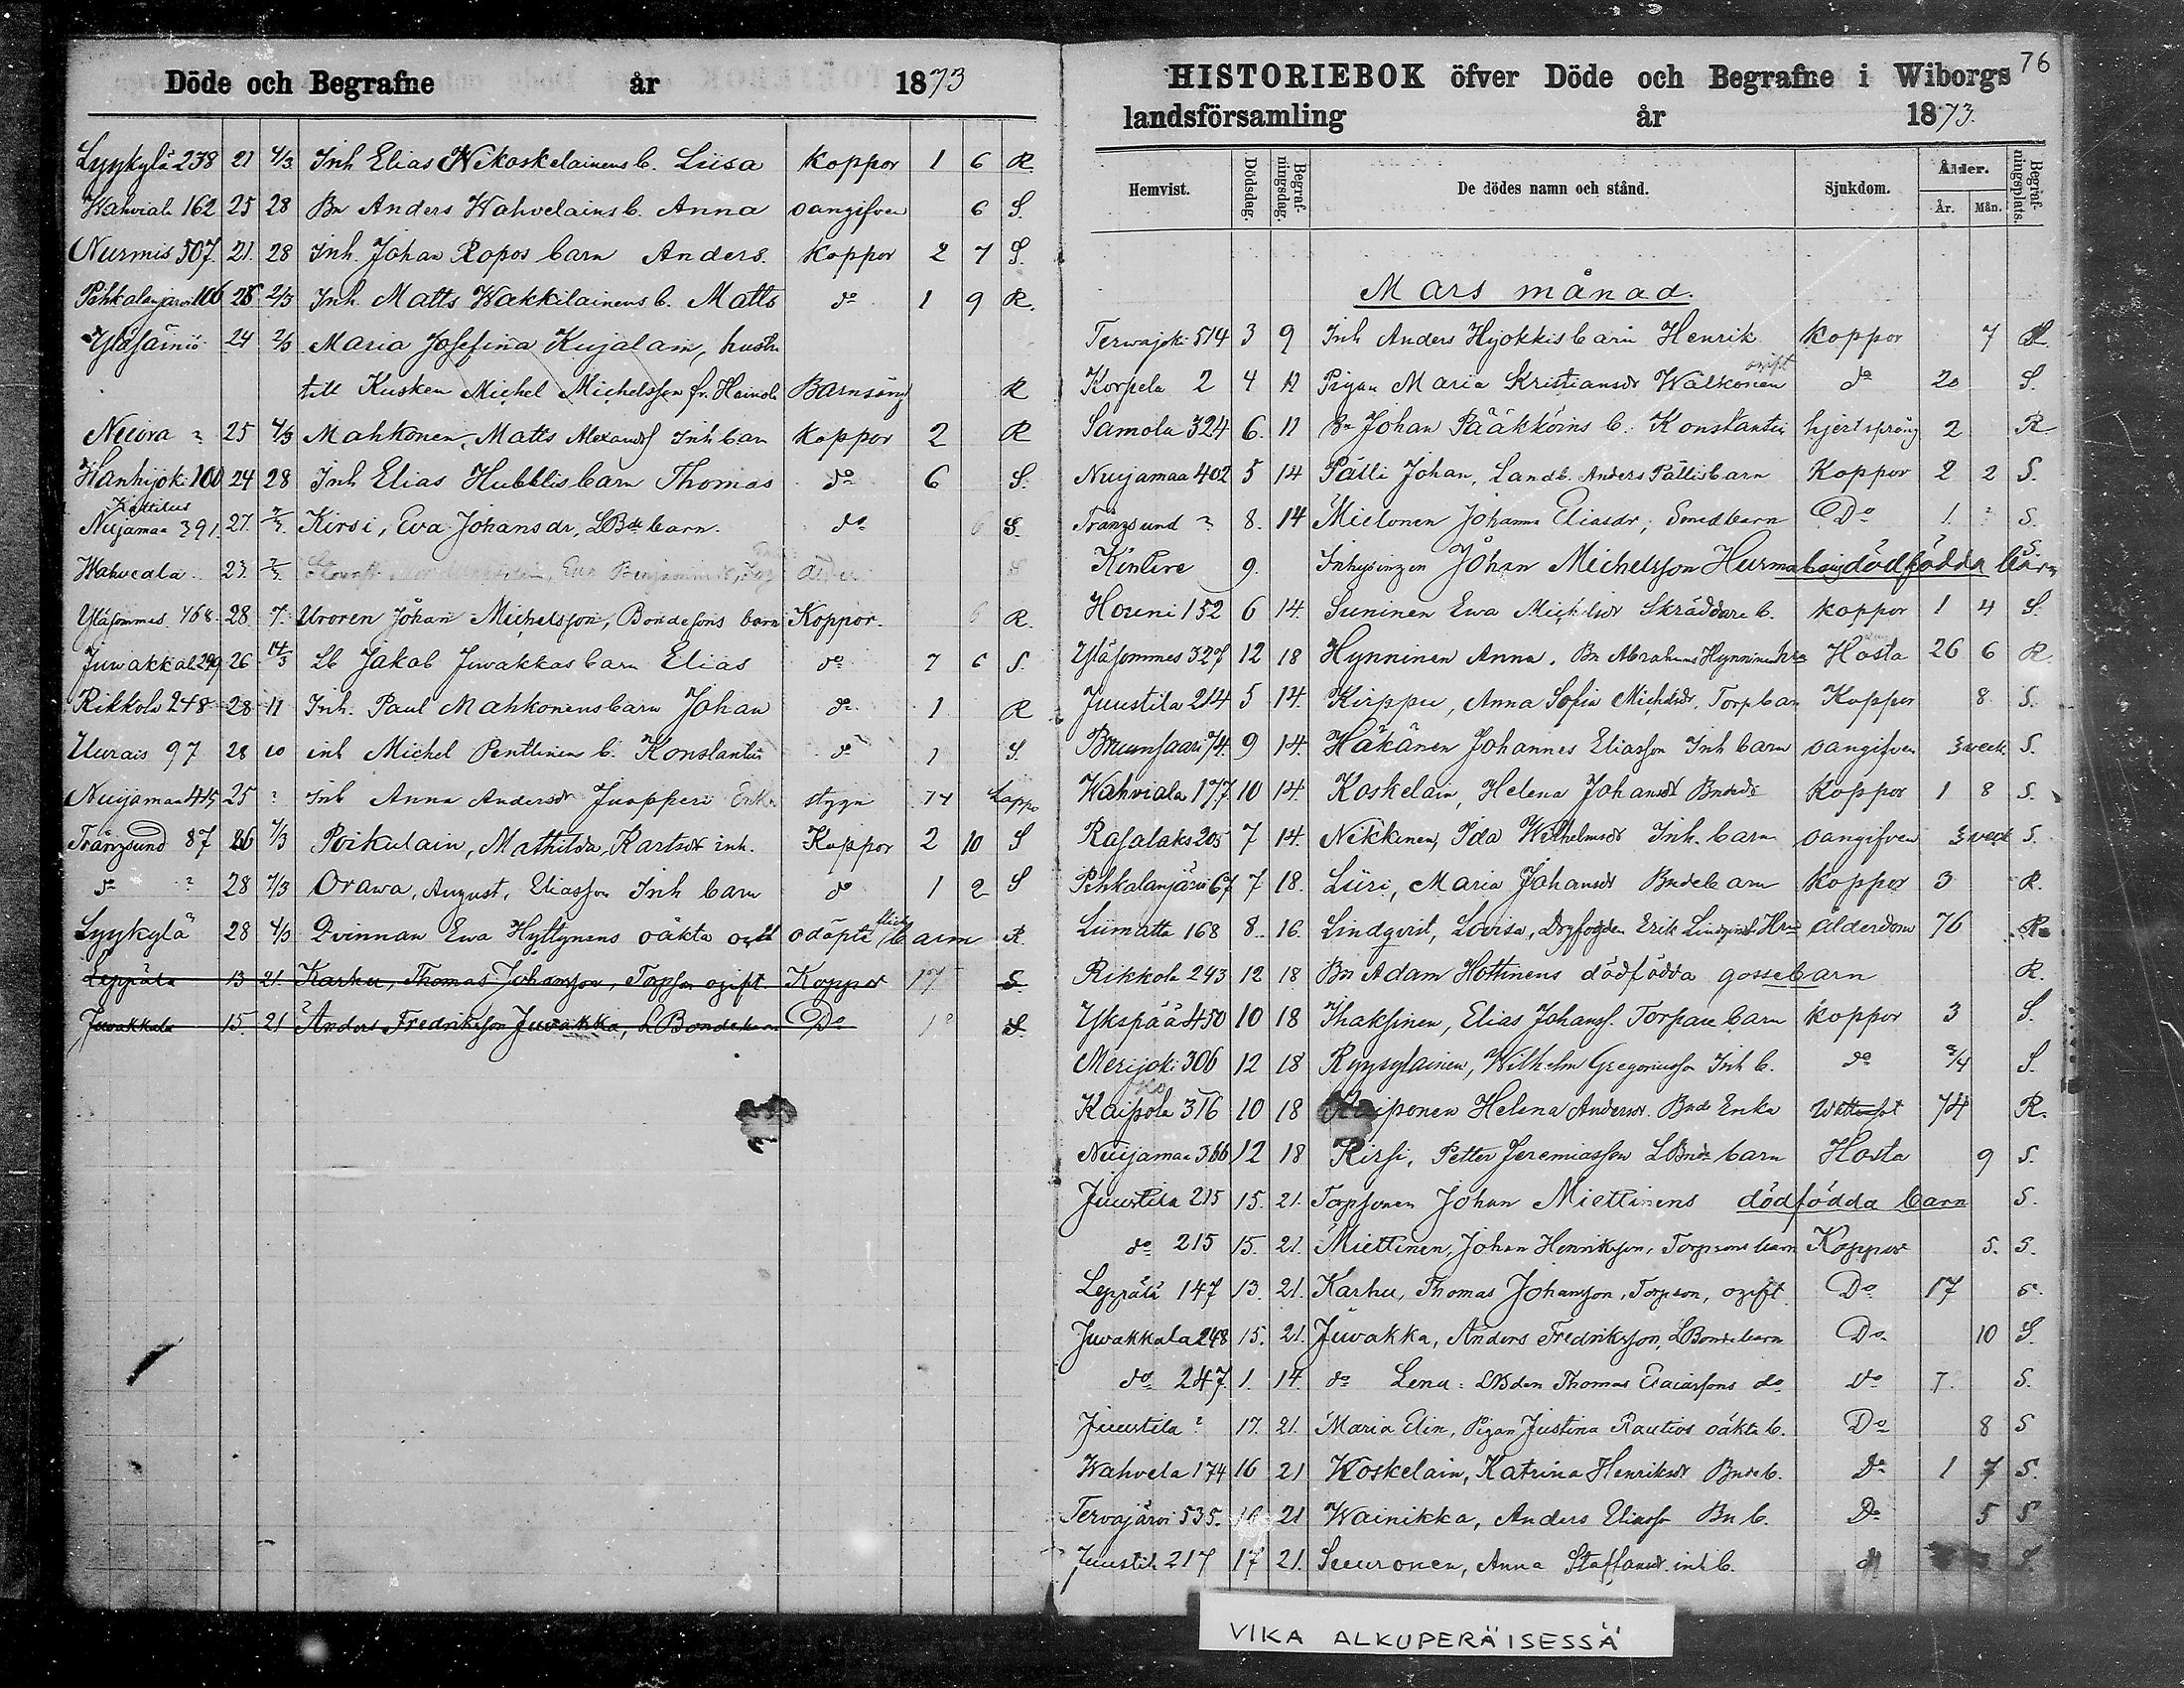 Döde och Begrafne år 1873
Lyykylä 238 21 4/3 Inh Elias Nikoskelainens b. Liisa Koppor 1 6 R.
Wahviala 162 25 28 Bn Anders Wahvelains b. Anna oangifven 6 S.
Nurmis 507. 21. 28 Inh. Johan Ropos barn Anders. Koppor 2 7 S.
Pihkalanjärvi 106 28 2/3 Inh. Matts Wakkilainens b. Matts do 1 9 R.
Yläsäiniö 24 2/3 Maria Josefina Kujalain, hustru
till Kusken Michel Michelsson fr. Heinola Barnsäng R
Neuva ? 25 4/3 Mahkonen, Matts Alexands Inh barn Koppor 2 R
Hanhijoki 100 24 28 Inh Elias Hubblis barn Thomas do 6 S.
Kättilus
Nuijamaa 391. 27. 7/3. Kirsi, Eva Johansdr, LBde barn. do 6 S.
Wahveala 23. 7/3. Eva Benjaminsdr
Yläsommes 468. 28. 7. Uroren Johan Michelsson, Bondesons barn Koppor. 6 R.
Juwakkal 249 26 14/3 Lb Jakob Juwakkas barn Elias do 7 6 S.
Rikkola 248 28 11 Inh. Paul Mahkonens barn Johan do 1 R
Uurais 97 28 10 inh Michel Penttinens b. Konstantin do 1 S.
Nuijamaa 415 25 ? Inh Anna Andersdr Juopperi Enka stygn 74 Lappo
Trångsund 87 26 7/3 Poikulain, Mathilda, Karlsdr inh. Koppor 2 10 S
do ? 28 7/3 Orawa, August, Eliasson Inh barn do 1 2 S
Lyykylä 28 4/3 Qvinnan Ewa Hyttynens oäkta odöpta flicke barn R.
Leppälä 13 21. Karhu, Thomas Johansson, Torpson ogift Koppor 17 S.
Juvakkala 15. 21 Anders Fredriksson Juvakka, LBondebarn Do S.
76
HISTORIEBOK öfver Döde och Begrafne i Wiborgs
landsförsamling år 1873.
Hemvist. Dödsdag. Begrafningsdag. De dödes namn och stånd. Sjukdom. Ålder. År. Mån. Begrafningsplats.
Mars månad.
Terwajoki 514 3 9 Inh Anders Hyökkis barn Henrik Koppor 7 S.
Korpela 2 4 11 Pigan Maria Kristiansdr Walkonen ogift do 20 S.
Samola 324 6. 11 Bn Johan Pääkköins b. Konstantin hjertsprång 2 R
Nuijamaa 402 5 14 Pälli Johan, Landb. Anders Pällis barn Koppor 2 2 S.
Trångsund ? 8. 14 Mielonen Johanna Eliasdr, Smedbarn Do 1. ? S.
Kintere 9. Inhysingen Johan Michelsson Hurmalains dödfödda barn S.
Houni 152 6 14. Suninen Ewa Michelsdr Skräddare b. koppor 1 4 S.
Yläsommes 327 12 18 Hynninen Anna, Bn Abrahams Hynninens hu Hosta 26 6 R.
Juustila 214 5 14. Kirppu, Anna Sofia Michelsdr, Torp barn Koppor 8 S.
Bruunsaari 74. 9 14. Häkänen Johannes Eliasson Inh barn oangifven 3 veck. S.
Wahviala 177 10 14. Koskelain, Helena Johansdr Bndedr Koppor 1 8 S.
Rasalaks 205 7 14. Nikkinen, Ida Wilhelmsdr Inh. barn oangifven 3 veck S.
Pihkalanjärvi 67 7 18. Liiri, Maria Johansdr Bndebarn Koppor 3 R.
Liimatta 168 8. 16. Lindqvist, Lovisa, Erik Lindqvists Hru ålderdom 76 R.
Rikkola 243 12 18 Bn Adam Hottinens dödfödda gossebarn R.
Ykspää 450 10 18 Ihaksinen, Elias Johanss. Torpare barn koppor 3 S.
Merijoki 306 12 18 Ryysyläinen, Wilhelm Gregoriusson Inh b. do 3/4 S.
Kaipola 316 10 18 Kaiponen Helena Andersdr. Bnde Enka Wattusot 74 R.
Nuijamaa 366 12 18 Kirsi, Petter Jeremiasson LBnde barn Hosta 9 S.
Juustila 215 15. 21. Torpsonen Johan Miettinens dödfödda barn S.
do 215 15. 21. Miettinen, Johan Henriksson, Torpsons barn Koppor 5. S.
Leppälä 147 13. 21. Karhu, Thomas Johansson, Torpson, ogift Do 17 S.
Juvakkala 248 15. 21. Juvakka, Anders Fredriksson, LBondebarn Do 10 S.
do 247. 1. 14. do Lena: LBden Thomas Esaiassons do do 7. S.
Juustila ? 17. 21. Maria Elin, Pigan Justina Rautios oäkta b. Do 8 S
Wahvela 174 16 21 Koskelain, Katrina Henriksdr Bnde b. Do 1 7 S.
Tervajärvi 535. 16 21 Wainikka, Anders Eliasson Bn b. Do 5 S
Juustila 217 17 21. Suuronen, Anna Staffansdr. inh b. S.
VIKA ALKUPERÄISESSÄ